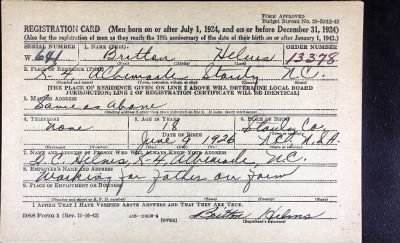 FORM APPROVED
Budget Bureau No. 33-R012-43
REGISTRATION CARD (Men born on or after July 1, 1924, and on or before December 31, 1924)
(Also for the registration of men as they reach the 18th anniversary of the date of their birth on or after January 1, 1943.)
SERIAL NUMBER 1. NAME (Print) ORDER NUMBER
W-641 Britton Helms 13378
(First) (Middle) (Last)
2. PLACE OF RESIDENCE (Print)
R-4 Albemarle Stanly N.C.
(Number and street) (Town, township, village, or city) (County) (State)
[THE PLACE OF RESIDENCE GIVEN ON LINE 2 ABOVE WILL DETERMINE LOCAL BOARD
JURISDICTION; LINE 2 OF REGISTRATION CERTIFICATE WILL BE IDENTICAL]
3. MAILING ADDRESS
Same as above
4. TELEPHONE 5. AGE IN YEARS 6. PLACE OF BIRTH
None 18 Stanly Co.
DATE OF BIRTH
June 9 1926 N.C. U.S.A.
7. NAME AND ADDRESS OF PERSON WHO WILL ALWAYS KNOW YOUR ADDRESS
Helms, R-4, Albemarle, N.C.
8. EMPLOYER'S NAME AND ADDRESS
Working for Father on farm
9. PLACE OF EMPLOYMENT OR BUSINESS
(Number and street or R. F. D. number) (Town) (County) (State)
I AFFIRM THAT I HAVE VERIFIED ABOVE ANSWERS AND THAT THEY ARE TRUE.
DSS Form 1 (Rev. 11-16-42) (OVER) Britton Helms
(Registrant's signature)